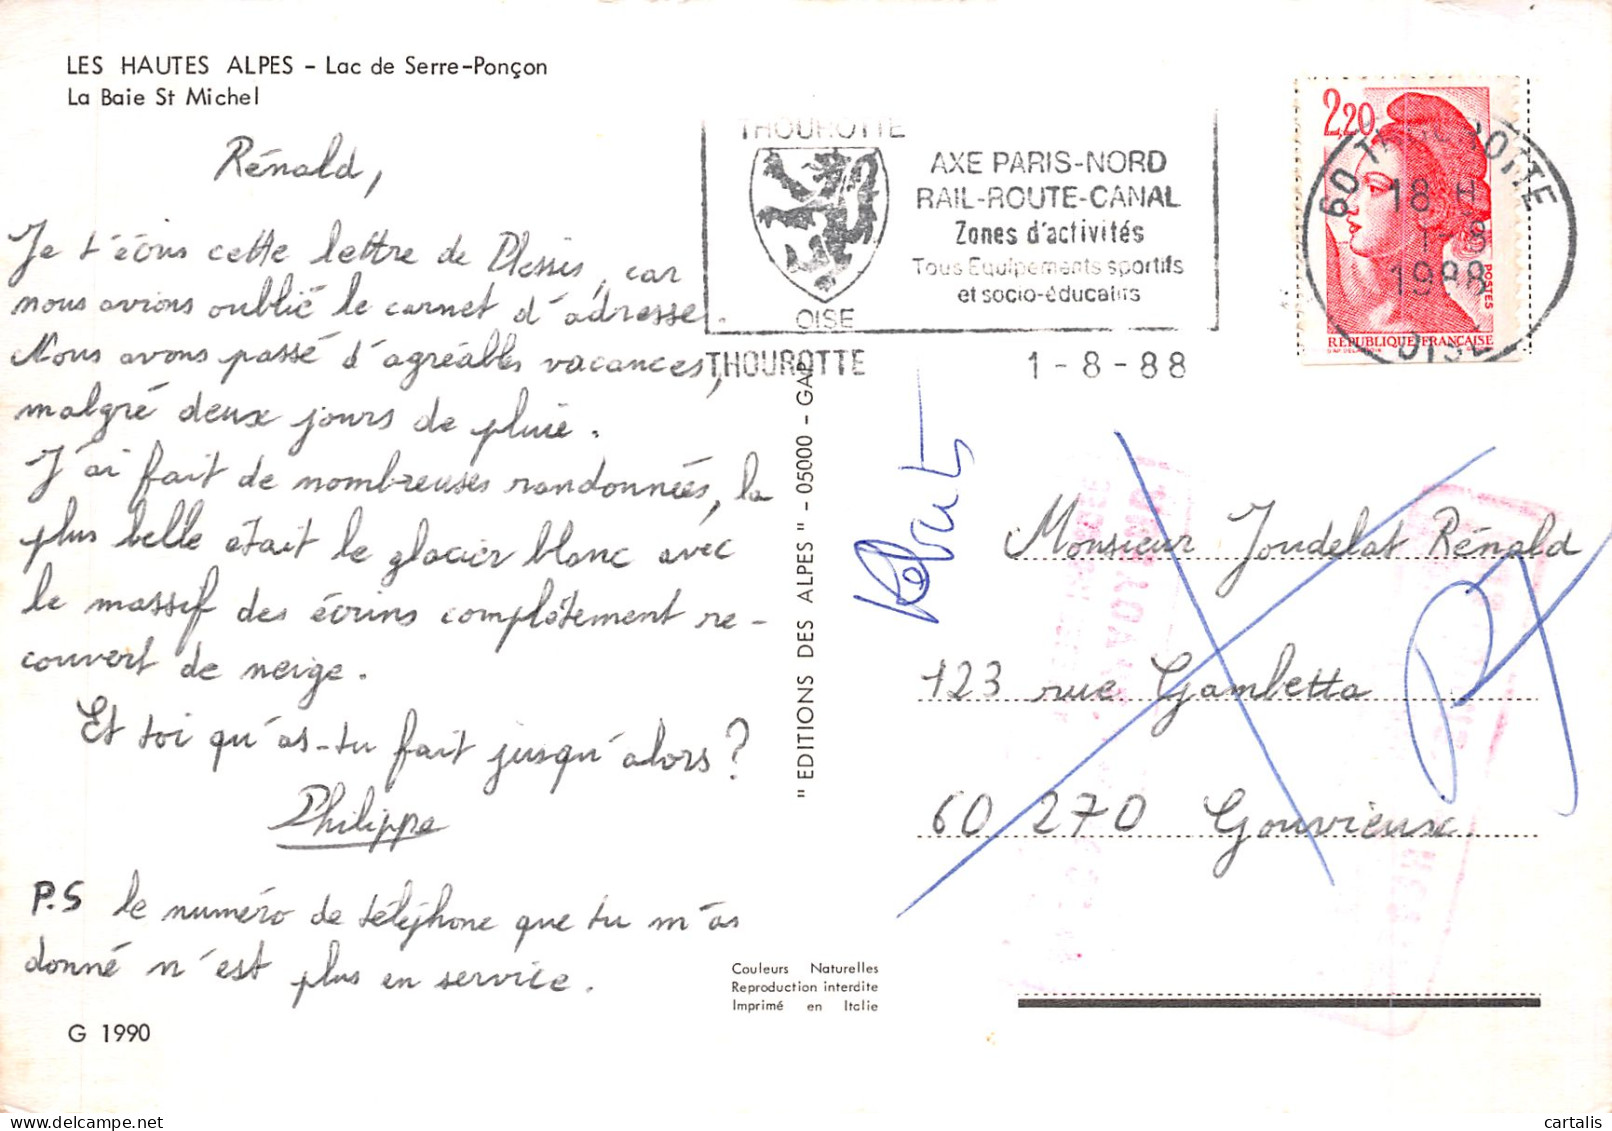 LES HAUTES ALPES - Lac de Serre-Ponçon
La Baie St Michel
Rénald,
Je t'écris cette lettre de Plessis, car
nous avions oublié le carnet d'adresse.
Nous avons passé d'agréables vacances,
malgré deux jours de pluie.
J'ai fait de nombreuses randonnées, la
plus belle était le glacier blanc avec
le massif des écrins complètement re-
couvert de neige.
Et toi qu'as-tu fait jusqu'alors?
Philippe
P.S le numéro de téléphone que tu m'as
donné n'est plus en service.
G 1990
" EDITIONS DES ALPES " - 05000 - GAP
Couleurs Naturelles
Reproduction interdite
Imprimé en Italie
THOUROTTE
OISE
AXE PARIS-NORD
RAIL-ROUTE-CANAL
Zones d'activités
Tous Equipements sportifs
et socio-éducatifs
THOUROTTE 1-8-88
2,20
POSTES
REPUBLIQUE FRANÇAISE
60 THOUROTTE
18 H
1-8
1988
OISE
Rebut
Monsieur Joudelat Rénald
123 rue Gambetta
60 270 Gouvieux
cartalis